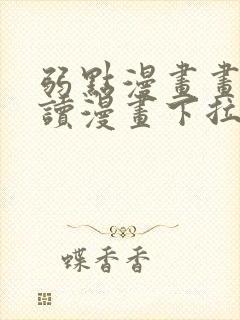 弱點漫畫畫
讀漫畫下拉
蝶香香